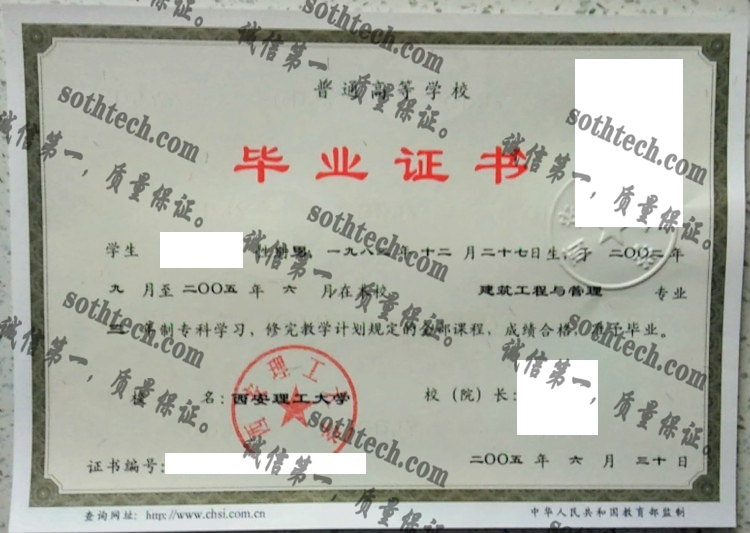 普通高等学校
毕业证书
学生 性别男，一九八二年十二月二十七日生，于二〇〇二年
九月至二〇〇五年六月在本校 建筑工程与管理 专业
三年制专科学习，修完教学计划规定的全部课程，成绩合格，准予毕业。
校名：西安理工大学 校（院）长：
证书编号： 二〇〇五年六月三十日
查询网址：http://www.chsi.com.cn 中华人民共和国教育部监制
sothtech.com
诚信第一，质量保证。
sothtech.com
诚信第一，质量保证。
sothtech.com
诚信第一，质量保证。
sothtech.com
诚信第一，质量保证。
sothtech.com
诚信第一，质量保证。
sothtech.com
诚信第一，质量保证。
sothtech.com
诚信第一，质量保证。